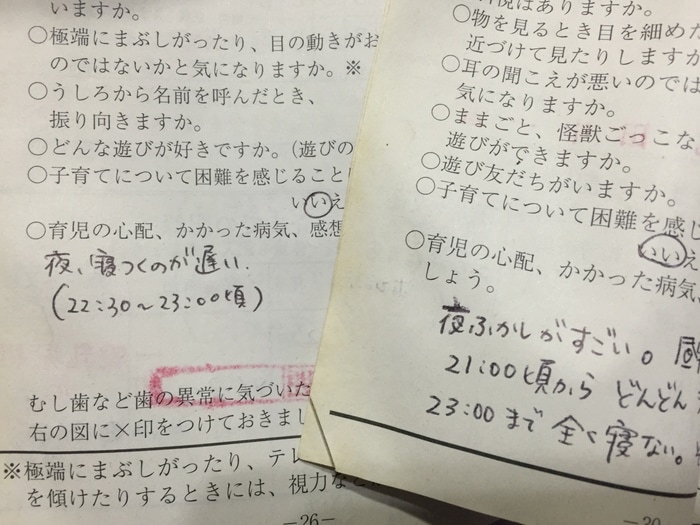 いますか。
○極端にまぶしがったり、目の動きがお
のではないかと気になりますか。※
○うしろから名前を呼んだとき、
振り向きますか。
○どんな遊びが好きですか。(遊びの
○子育てについて困難を感じること
いいえ
○育児の心配、かかった病気、感想
夜、寝つくのが遅い.
(22:30〜23:00頃)
むし歯など歯の異常に気づいた
右の図に×印をつけておきまし
※極端にまぶしがったり、テレ
を傾けたりするときには、視力など
−26−
はありますか。
○物を見るとき目を細めた
近づけて見たりしますか
○耳の聞こえが悪いのでは
気になりますか。
○ままごと、怪獣ごっこな
遊びができますか。
○遊び友だちがいますか。
○子育てについて困難を感じ
いいえ
○育児の心配、かかった病気
しょう。
夜ふかしがすごい。
21:00頃から どんどん
23:00まで全く寝ない。
−30